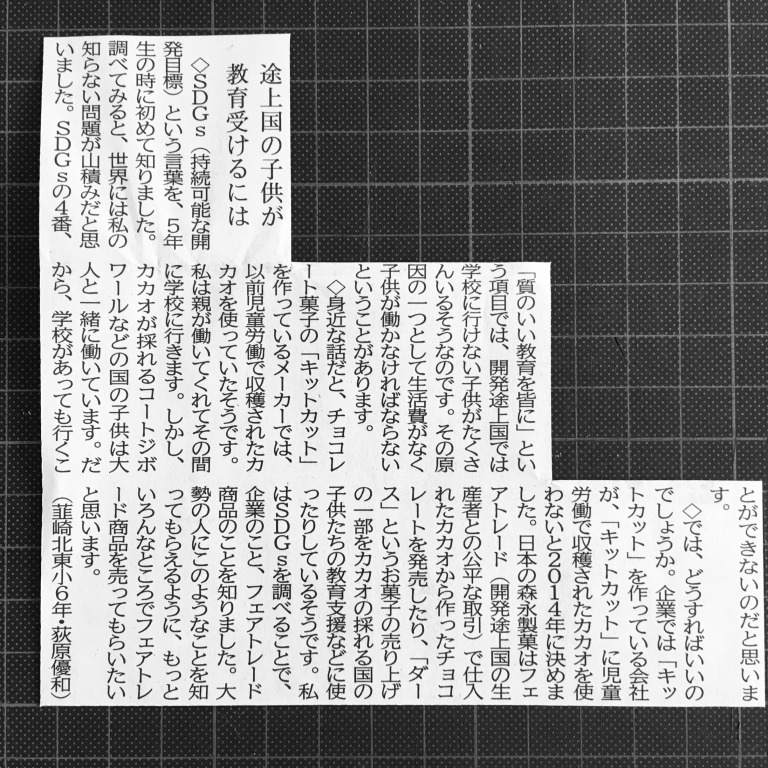 途上国の子供が
教育受けるには
◇SDGs(持続可能な開
発目標)という言葉を、5年
生の時に初めて知りました。
調べてみると、世界には私の
知らない問題が山積みだと思
いました。SDGsの4番、
「質のいい教育を皆に」とい
う項目では、開発途上国では
学校に行けない子供がたくさ
んいるそうなのです。その原
因の一つとして生活費がなく
子供が働かなければならない
ということがあります。
◇身近な話だと、チョコレ
ート菓子の「キットカット」
を作っているメーカーでは、
以前児童労働で収穫されたカ
カオを使っていたそうです。
私は親が働いてくれてその間
に学校に行きます。しかし、
カカオが採れるコートジボ
ワールなどの国の子供は大
人と一緒に働いています。だ
から、学校があっても行くこ
とができないのだと思いま
す。
◇では、どうすればいいの
でしょうか。企業では「キッ
トカット」を作っている会社
が、「キットカット」に児童
労働で収穫されたカカオを使
わないと2014年に決めま
した。日本の森永製菓はフェ
アトレード(開発途上国の生
産者との公平な取引)で仕入
れたカカオから作ったチョコ
レートを発売したり、「ダー
ス」というお菓子の売り上げ
の一部をカカオの採れる国の
子供たちの教育支援などに使
ったりしているそうです。私
はSDGsを調べることで、
企業のこと、フェアトレード
商品のことを知りました。大
勢の人にこのようなことを知
ってもらえるように、もっと
いろんなところでフェアトレ
ード商品を売ってもらいたい
と思います。
(韮崎北東小6年・荻原優和)